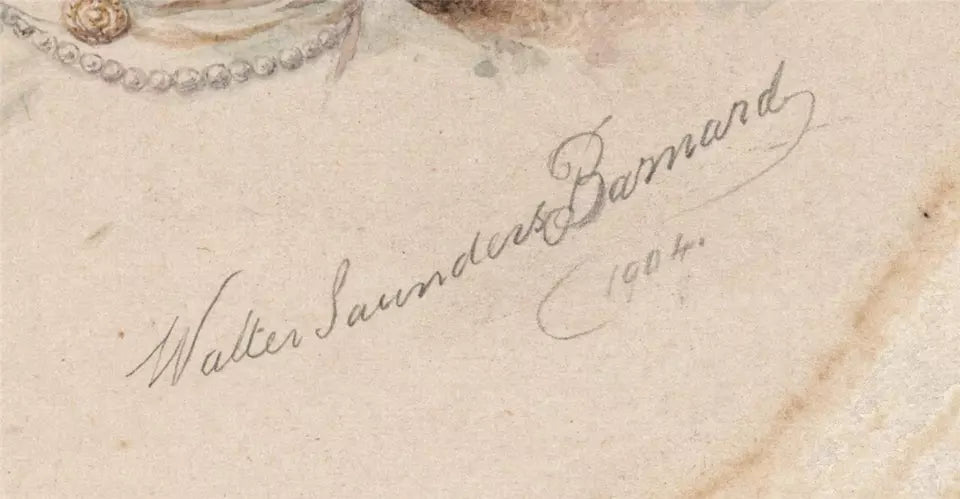 Walter Saunders Barnard
1904.